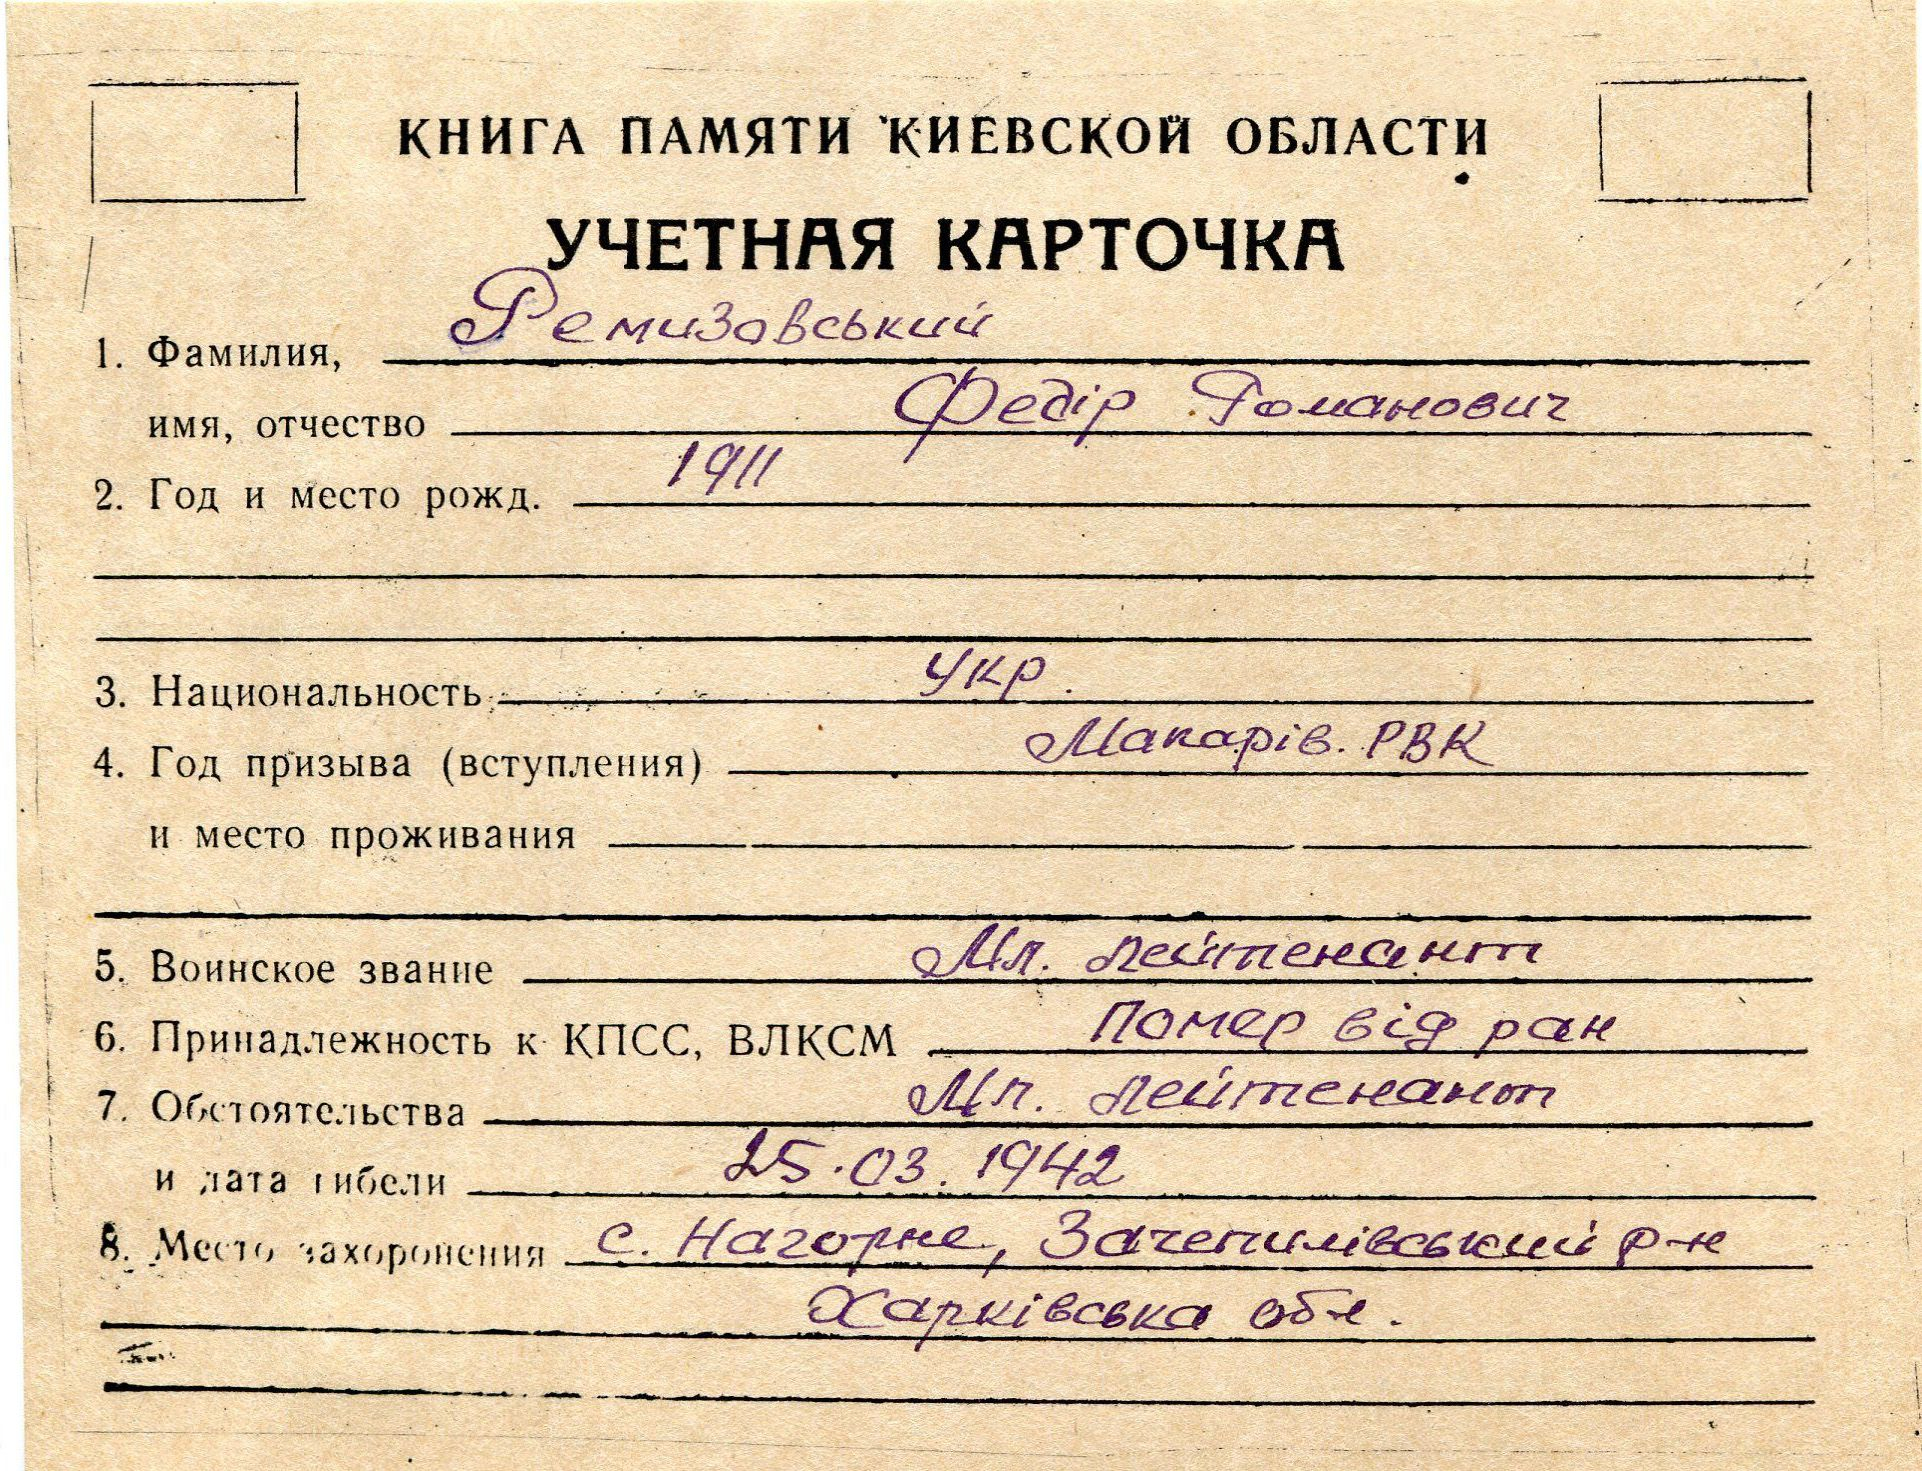 КНИГА ПАМЯТИ КИЕВСКОЙ ОБЛАСТИ
УЧЕТНАЯ КАРТОЧКА
1. Фамилия, Ремизовський
имя, отчество Федір Романович
2. Год и место рожд. 1911
3. Национальность Укр.
4. Год призыва (вступления) Макарів. РВК
и место проживания
5. Воинское звание Мл. лейтенант
6. Принадлежность к КПСС, ВЛКСМ Помер від ран
7. Обстоятельства Мл. лейтенант
и дата гибели 25.03.1942
8. Место захоронения с. Нагорне, Зачепилівський р-н
Харківська обл.